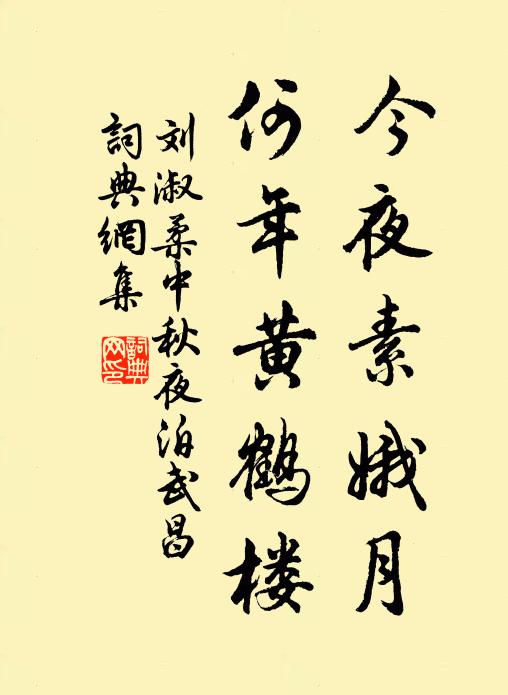 今夜素娥月
何年黄鹤楼
刘淑柔中秋夜泊武昌
詞典網集
詞典网印